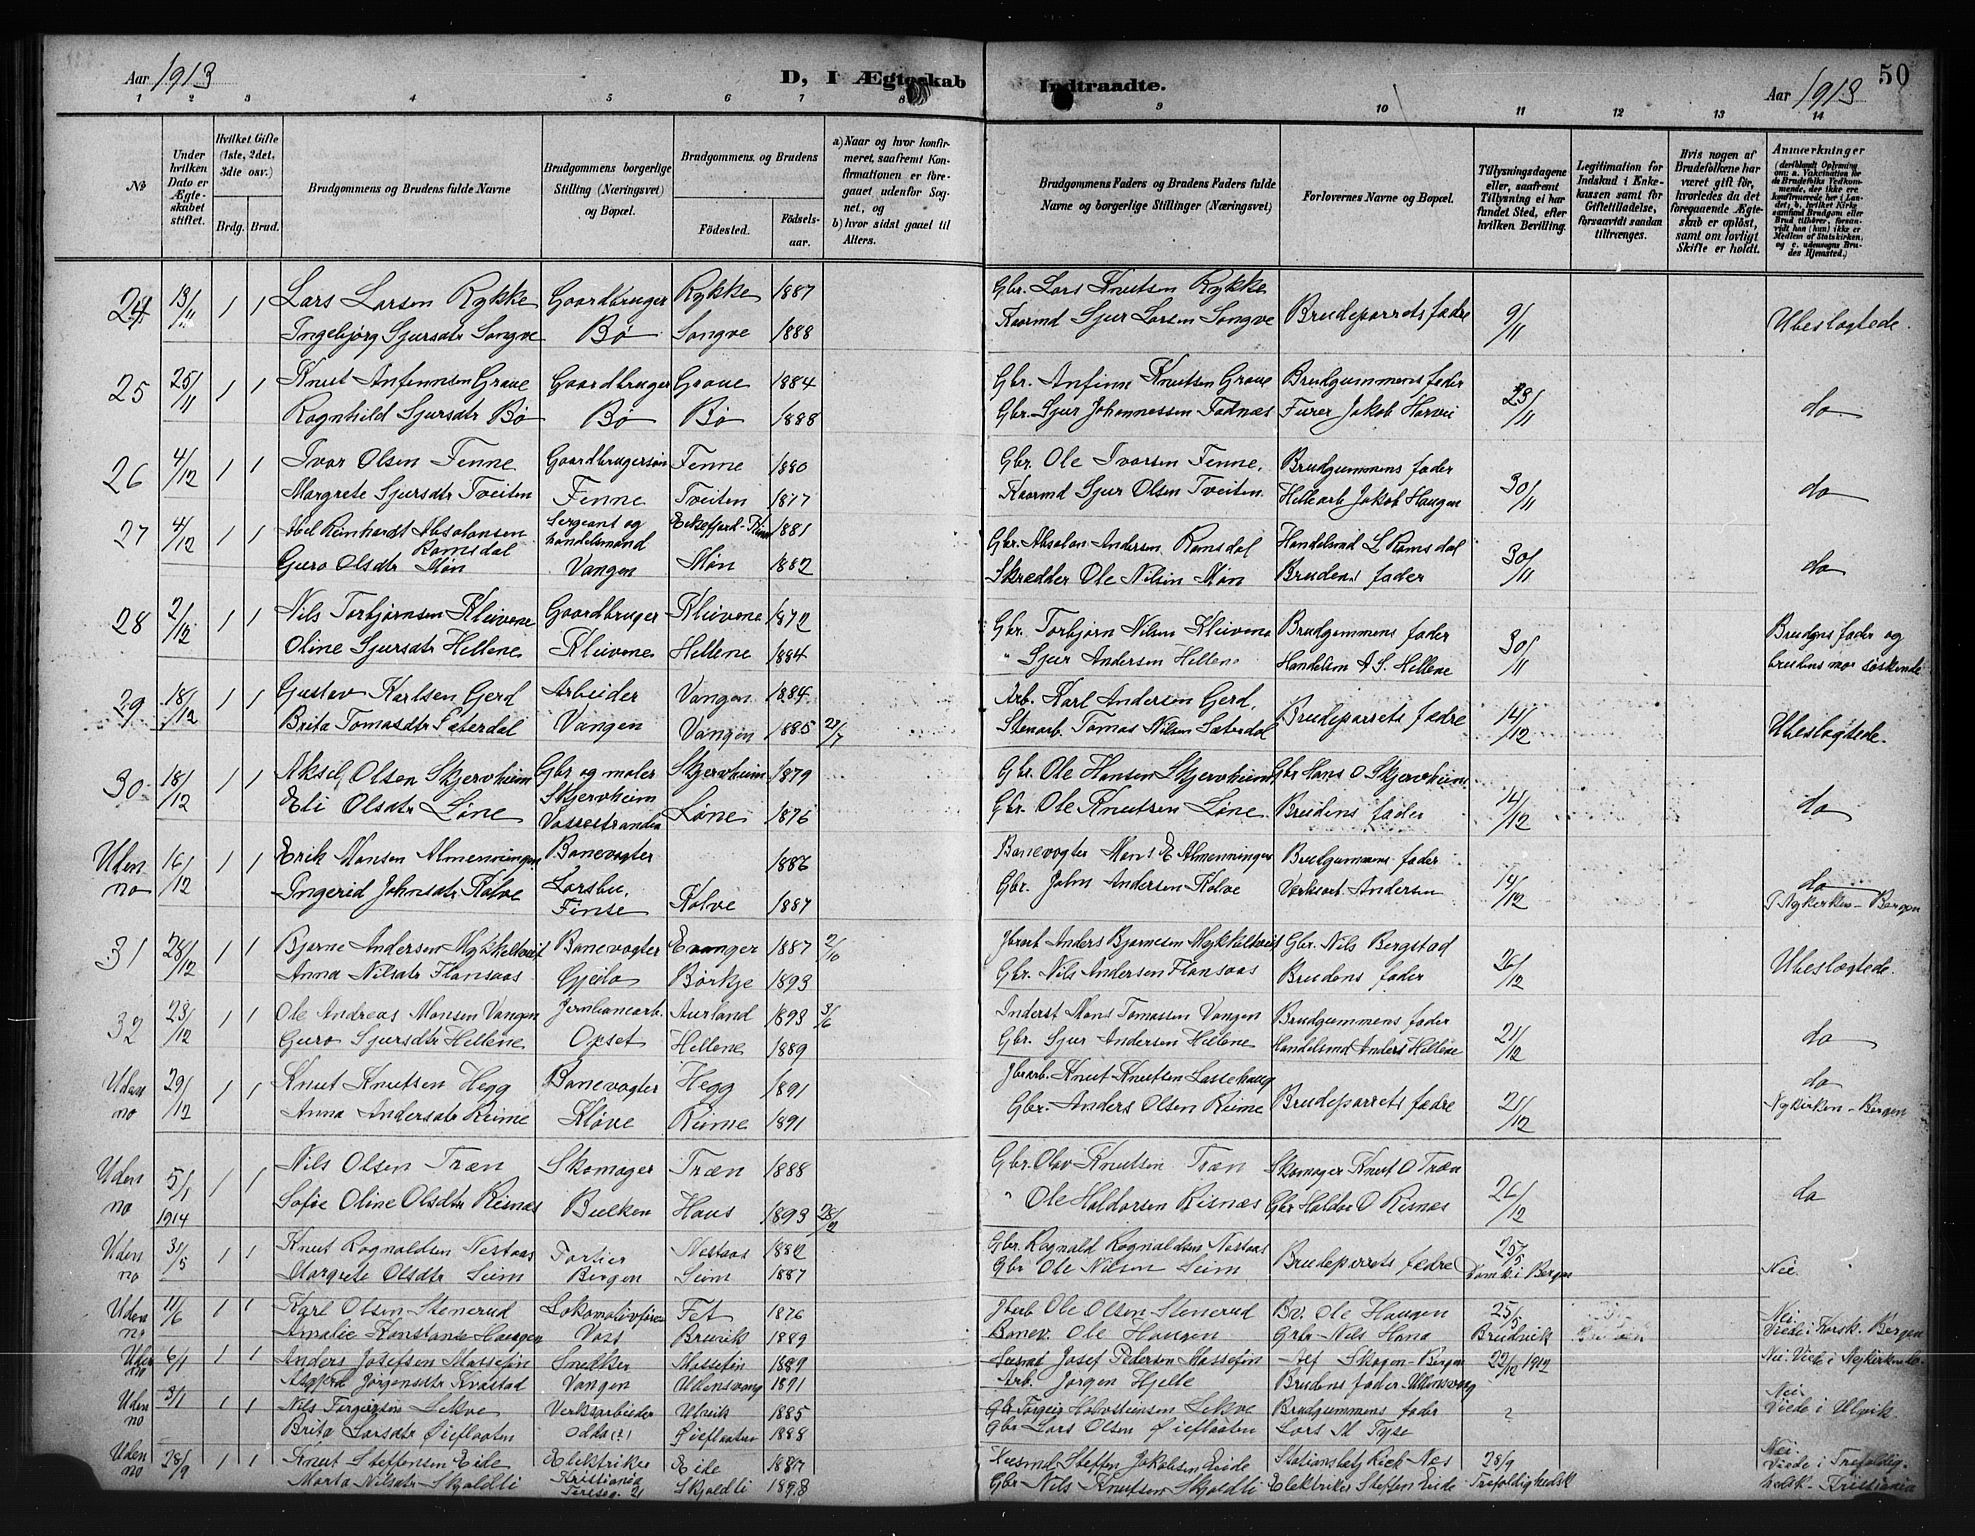 Aar 1913
D, I Ægteskab Indtraadte.
Aar 1913
50
1 2 3 4 5 6 7 8 9 10 11 12 13 14
No
Under hvilken Dato er Ægteskabet stiftet.
Hvilket Gifte (1ste, 2det, 3die osv.)
Brdg. Brud.
Brudgommens og Brudens fulde Navne
Brudgommens borgerlige Stilling (Næringsvei) og Bopæl.
Brudgommens og Brudens
Födested. Födsels-aar.
a) Naar og hvor konfirmeret, saafremt Konfirmationen er foregaaet udenfor Sognet, og
b) hvor sidst gaaet til Alters.
Brudgommens Faders og Brudens Faders fulde Navne og borgerlige Stillinger (Næringsvei)
Forlovernes Navne og Bopæl.
Tillysningsdagene eller, saafremt Tillysning ei har fundet Sted, efter hvilken Bevilling.
Legitimation for Indskud i Enkekassen samt for Giftetilladelse, forsaavidt saadan tiltrænges.
Hvis nogen af Brudefolkene har været gift för, hvorledes da det foregaaende Ægteskab er oplöst, samt om lovligt Skifte er holdt.
Anmærkninger
24 13/11 1 1 Lars Larsen Rykke Gaardbruger Rykke 1887 Gbr. Lars Knutsen Rykke Brudeparrets fædre 9/11 Ubeslægtede.
Ingebjørg Sjursdtr Songve Bø Songve 1888 Kaarmd Sjur Larsen Songve
25 25/11 1 1 Knut Anfinnsen Graue Gaardbruger Graue 1884 Gbr. Anfinn Knutsen Graue Brudgummens fader 23/11 do
Ragnhild Sjursdtr Bø Bø Bø 1888 Gbr. Sjur Johannessen Furer Jakob
26 4/12 1 1 Ivar Olsen Fenne Gaardbrugersøn Fenne 1880 Gbr. Ole Ivarsen Fenne. Brudgummens fader 30/11 do
Margrete Sjursdtr Tveiten Fenne Tveiten 1877 Kaarmd Sjur Olsen Tveiten Jakob Haugen
27 4/12 1 1 Abel Reinhardt Absalonsen Ramsdal Sergeant og handelsmand 1881 Gbr. Absalon Andersen Ramsdal Handelsmd L Ramsdal 30/11 do
Guro Olsdtr Møn Vangen Møn 1882 Skrædder Ole Nilsen Møn Brudens fader
28 2/12 1 1 Nils Torbjørnsen Kleivene Gaardbruger Kleivene 1872 Gbr. Torbjørn Nilsen Kleivene Brudgummens fader 30/11 Brudens fader og
Oline Sjursdtr Hellene Kleivene Hellene 1884 " Sjur Andersen Hellene Handelsm A. S. Hellene brudens mor søskende
29 18/12 1 1 Gustav Karlsen Gerd Arbeider Vangen 1884 Arb. Karl Andersen Gerd. Brudeparrets fædre 14/12 Ubeslægtede.
Brita Tomasdtr Sæterdal Vangen Vangen 1885 27/7 Stenarb. Tomas Nilsen Sæterdal
30 18/12 1 1 Aksel Olsen Skjervheim Gbr og maler Skjervheim 1879 Gbr. Ole Hansen Skjervheim Gbr Hans O Skjervheim
Eli Olsdtr Løne Skjervheim Vossestranden Løne 1876 Gbr. Ole Knutsen Løne Brudens fader 14/12 do
Uden no 16/12 1 1 Erik Monsen Almenningen Banevogter 1886 Banevogter Mons E Almenningen Brudgummens fader 14/12 do
Ingerid Johnsdtr Kolve Larsbu, Finse Kolve 1887 Gbr. John Andersen Kolve Verksarb. Andersen I Nykirken - Bergen
31 28/12 1 1 Bjarne Andersen Mykkeltveit Banevogter Evanger 1887 2/10 Anders Bjarnesen Mykkeltveit Gbr. Nils Bergstad 26/12 Ubeslægtede.
Anna Nilsdtr Flansaas Gjeilo Børkje 1893 Gbr. Nils Andersen Flansaas Brudens fader
32 23/12 1 1 Ole Andreas Monsen Vangen Jernbanearb. Aurland 1893 3/6 Inderst Mons Tomassen Vangen Brudgummens fader 21/12 do
Guro Sjursdtr Hellene Opset Hellene 1889 Gbr. Sjur Andersen Hellene Handelsmd Anders Hellene
Uden no 29/12 1 1 Knut Knutsen Hegg Banevogter Hegg 1891 Jbarb. Knut Knutsen Lassehaug Brudeparrets fædre 21/12 do
Anna Andersdtr Reime Kløve Reime 1891 Gbr. Anders Olsen Reime Nykirken - Bergen
Uden no 5/1 1914 1 1 Nils Olsen Træn Skomager Træn 1888 Gbr. Olav Knutsen Træn Skomager Knut O Træn 26/12 do
Sofie Oline Olsdtr Risnæs Bulken Haus 1893 28/12 " Ole Haldorsen Risnæs Gbr Haldor O Risnæs
Uden no 31/5 1 1 Knut Rognaldsen Nestaas Portier Nestaas 1882 Gbr. Rognald Rognaldsen Nestaas Brudeparrets fædre 25/5 Nei.
Margrete Olsdtr Seim Bergen Seim 1887 Gbr Ole Nilsen Seim Domk. i Bergen
Uden no 11/6 1 1 Karl Olsen Stenerud Lokomotivfører Fet 1876 Jbarb Ole Olsen Stenerud Bv. Ole Haugen 25/5 Nei
Amalie Konstanse Haugen Voss Bruvik 1889 Banev. Ole Haugen Gbr. Nils Hana Brudvik Viede i Korsk. Bergen
Uden no 6/1 1 1 Anders Josefsen Snedker 1889 Josef Pedersen Alf Skogen - Bergen 22/12 1912 Nei. Viede i Nykirken
Jørgensdtr Kvastad Vangen Ullensvang 1891 Arb. Jørgen Hjelle Brudens fader Ullensvang
Uden no 3/1 1 1 Nils Torgersen Lekve Verksarbeider Ulvik 1885 Gbr Torgeir Lekve Brudgummens fader ? Nei
Brita Larsdtr Øieflaaten Odda (?) Øieflaaten 1888 Gbr Lars Olsen Øieflaaten Lars M Viede i Ulvik.
Uden no 28/9 1 1 Knut Steffensen Eide Elektriker Eide 1887 Husmd Steffen Jakobsen Eide 28/9 Nei
Marta Nilsdtr Skjoldli Kristiania Skjoldli 1898 Gbr Nils Knutsen Skjoldli Elektriker Steffen Eide Trefoldighedsk Viede i Trefoldighedsk - Kristiania